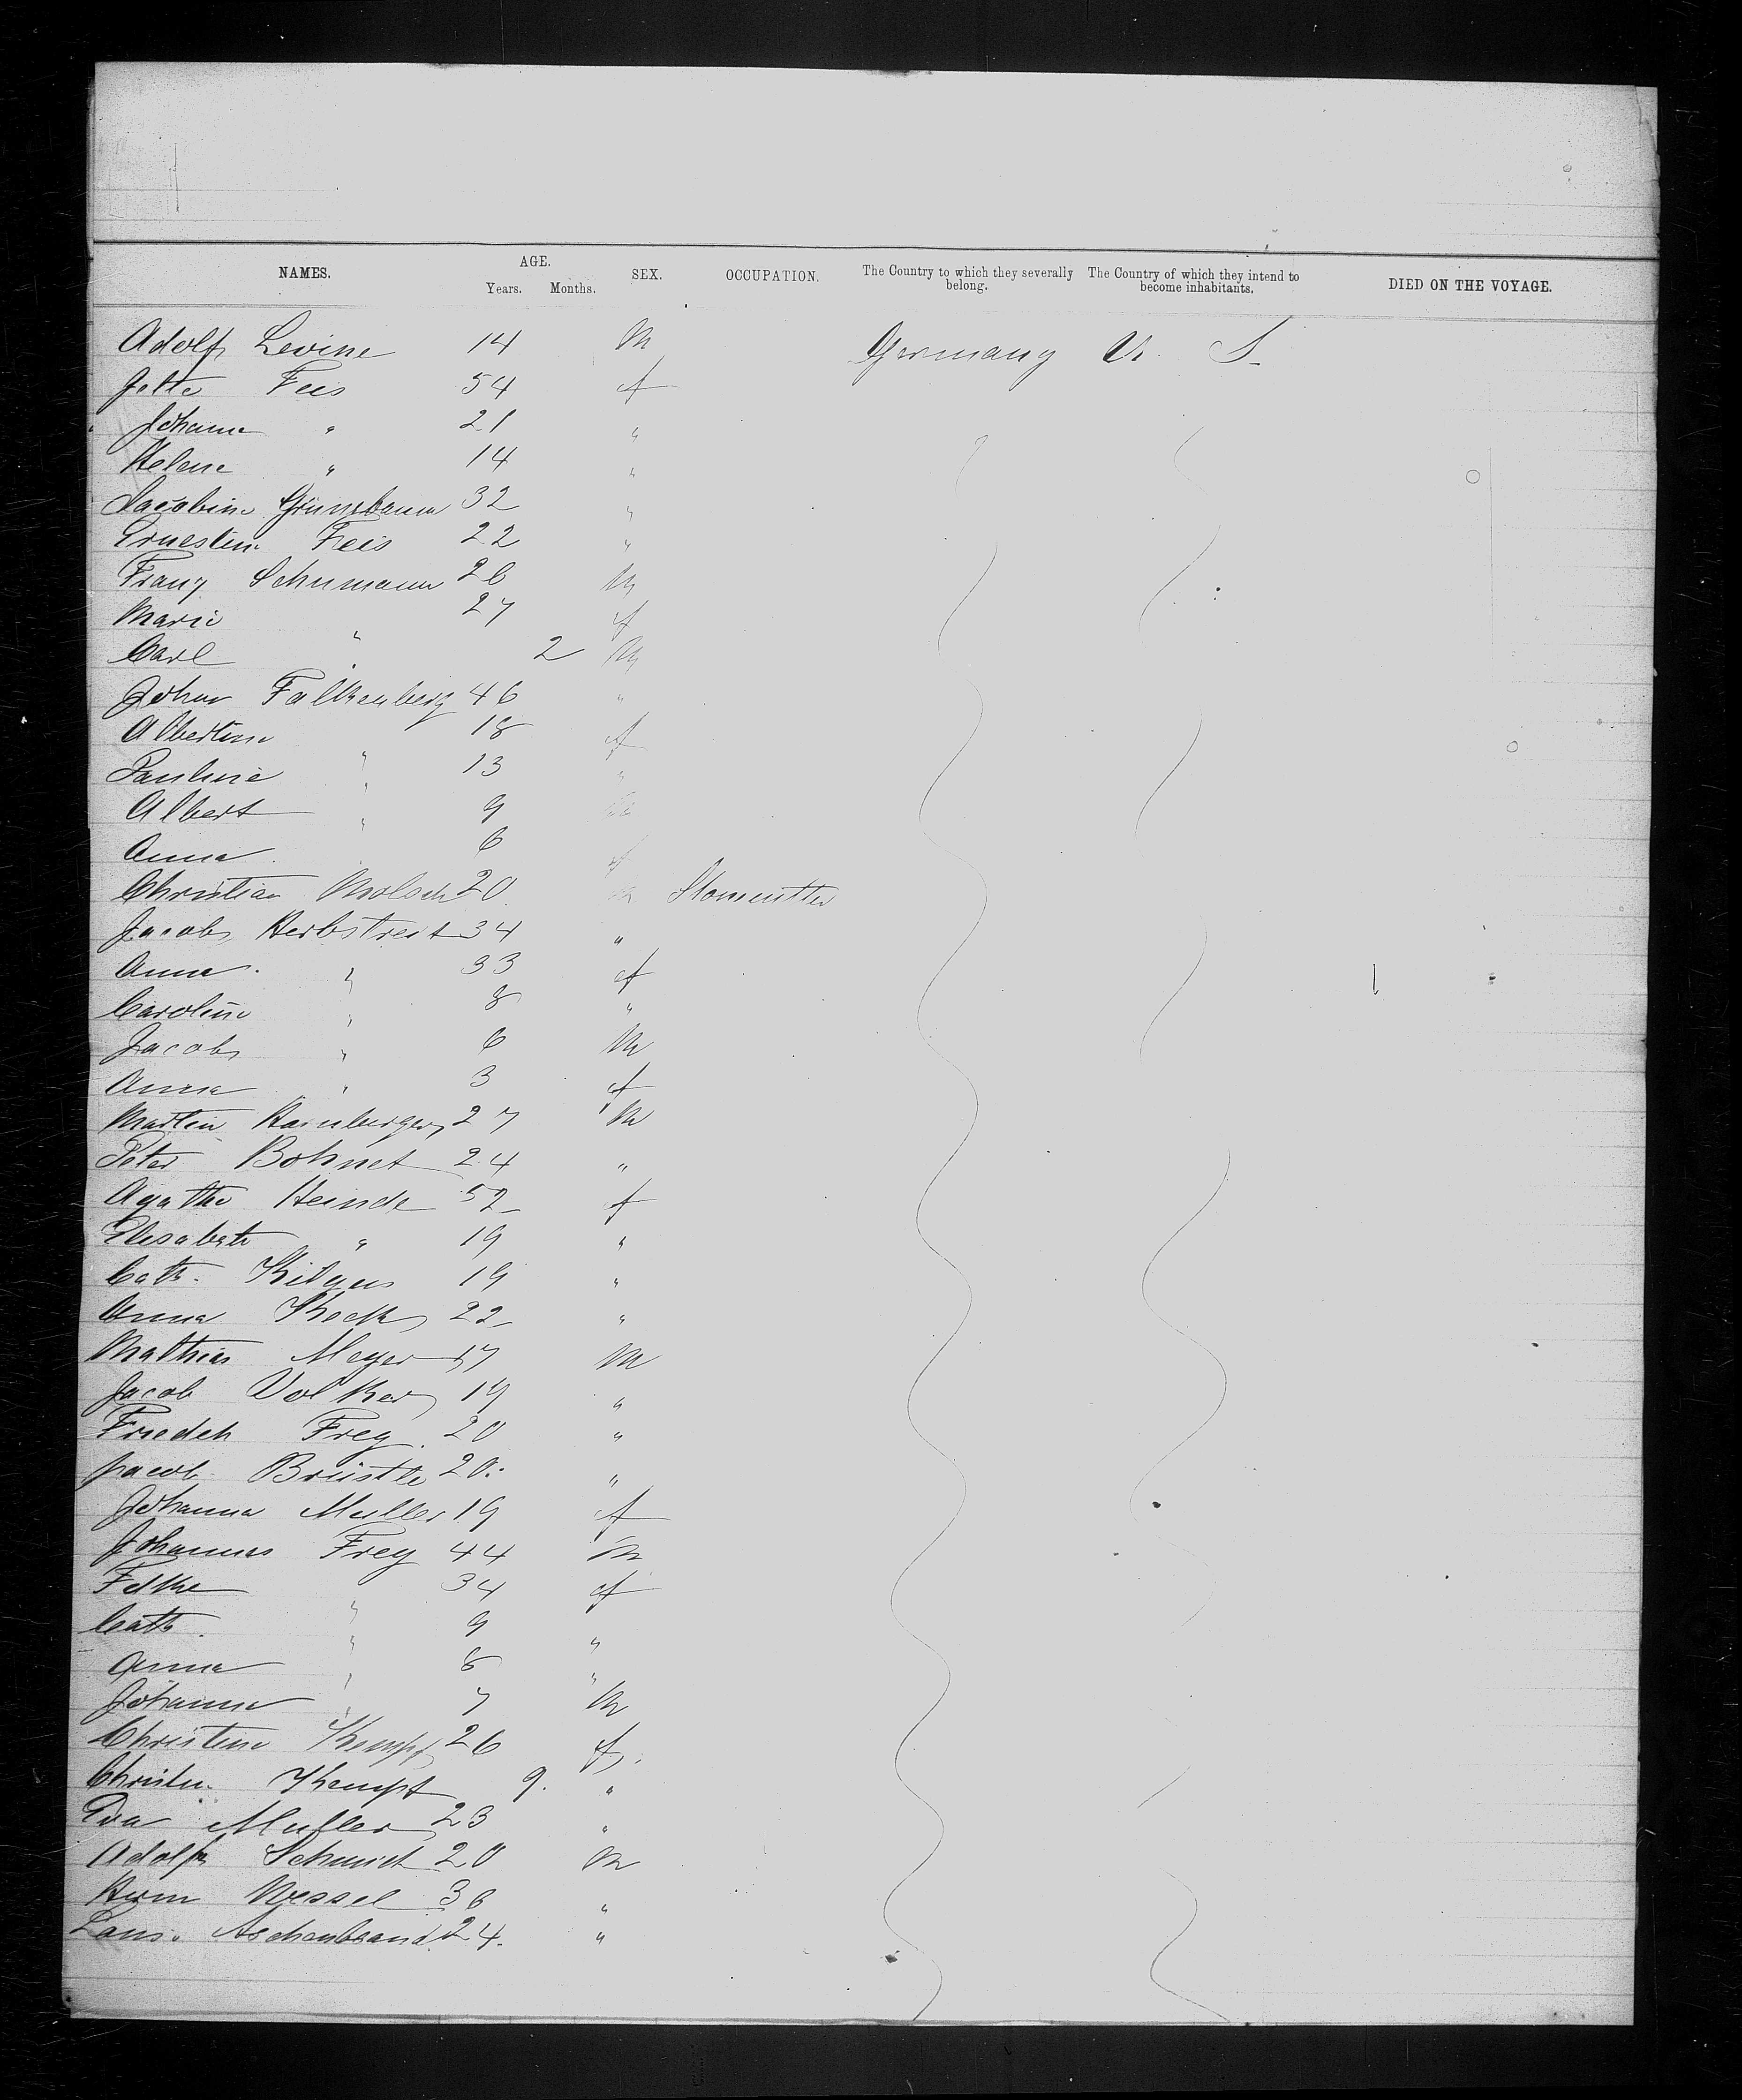 NAMES. AGE. Years. Months. SEX. OCCUPATION. The Country to which they severally belong. The Country of which they intend to become inhabitants. DIED ON THE VOYAGE.
Adolf Levine 14 M Germany U. S.
Jette Feis 54 f
Johanna " 21 "
Helene " 14 "
Jacobine Grünebaum 32 "
Ernestine Feis 22 "
Franz Schumann 26 M
Marie " 27 f
Carl " 2 M
Johan Falkenberg 46 "
Albertine " 18 f
Pauline " 13 "
Albert " 9 M
Anna 6 f
Christian 20 M Stonecutter
Jacob Herbstreit 34 "
Anna " 33 f
Caroline " 8 "
Jacob " 6 M
Anna " 3 f
Martin 27 M
Peter Bohnet 24 "
Agathe Heinde 52 f
Elisabeth " 19 "
Cath. Kilgus 19 "
Anna Keck 22 "
Mathias Meyer 17 M
Jacob Volker 19 "
Friedch Frey 20 "
Jacob Brüstle 20 "
Johanna Muller 19 f
Johannes Frey 44 M
34 f
Cath. " 9 "
Anna " 8 "
Johanna " 7 M
Christine Kempf 26 f
Christn. Kempf 9 "
Eva Muller 23 "
Adolph Schmidt 20 M
Herm Wessel 36 "
Aschenbrand 24 "